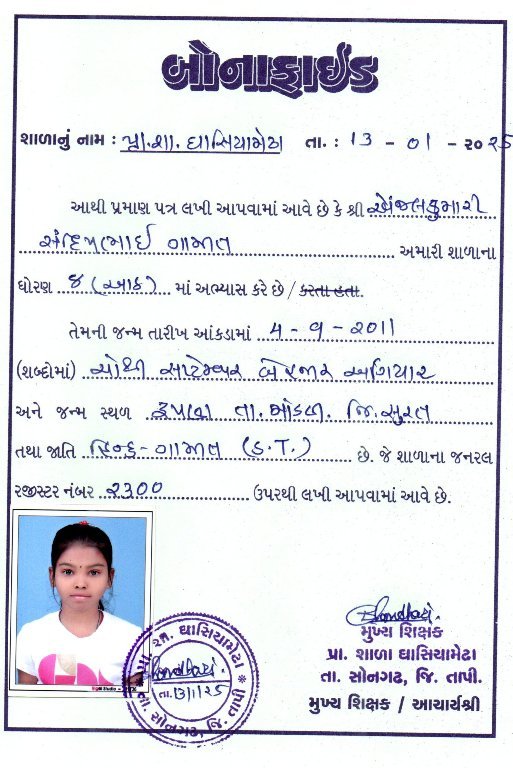 બોનાફાઈડ
શાળાનું નામ : પ્રા.શા. ઘાસિયામેઢા તા. : 13 - 01 - ૨૦૨૫
આથી પ્રમાણ પત્ર લખી આપવામાં આવે છે કે શ્રી
ગામીત અમારી શાળાના
ધોરણ ૮ (આઠ) માં અભ્યાસ કરે છે / કરતા હતા.
તેમની જન્મ તારીખ આંકડામાં 4 - 9 - 2011
(શબ્દોમાં) ચોથી સપ્ટેમ્બર બે હજાર અગિયાર
અને જન્મ સ્થળ તા. માંડવી જિ. સુરત
તથા જાતિ હિન્દુ - ગામીત (S.T.) છે. જે શાળાના જનરલ
રજીસ્ટર નંબર ૨૩૦૦ ઉપરથી લખી આપવામાં આવે છે.
મુખ્ય શિક્ષક
પ્રા. શાળા ઘાસિયામેઢા
તા. સોનગઢ, જિ. તાપી.
મુખ્ય શિક્ષક / આચાર્યશ્રી
ઘાસિયામેઢા
તા. 13/1/25
તા. સોનગઢ, જિ. તાપી